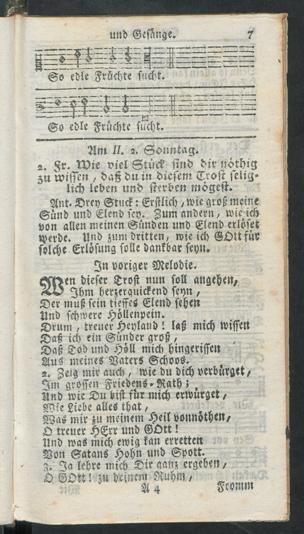 und Gesänge. 7
So edle Früchte sucht.
So edle Früchte sucht.
Am II. 2. Sonntag.
2. Fr. Wie viel Stück sind dir nöthig
zu wissen, daß du in diesem Trost selig-
lich leben und sterben mögest.
Ant. Drey Stuck: Erstlich, wie groß meine
Sünd und Elend sey. Zum andern, wie ich
von allen meinen Sünden und Elend erlöset
werde. Und zum dritten, wie ich GOtt für
solche Erlösung solle dankbar seyn.
In voriger Melodie.
Wen dieser Trost nun soll angehen,
Ihm herzerquickend seyn,
Der muß sein tieffes Elend sehen
Und schwere Höllenpein.
Drum, treuer Heyland! laß mich wissen
Daß ich ein Sünder groß,
Daß Tod und Höll mich hingerissen
Aus meines Vaters Schoos.
2. Zeig mir auch, wie du dich verbürget,
Im grossen Friedens-Rath;
Und wie Du bist für mich erwürget,
Wie Liebe alles that,
Was mir zu meinem Heil vonnöthen,
O treuer HErr und GOtt!
Und was mich ewig kan erretten
Von Satans Hohn und Spott.
3. Ja lehre mich Dir ganz ergeben,
O GOtt! zu deinem Ruhm,
A 4 Fromm